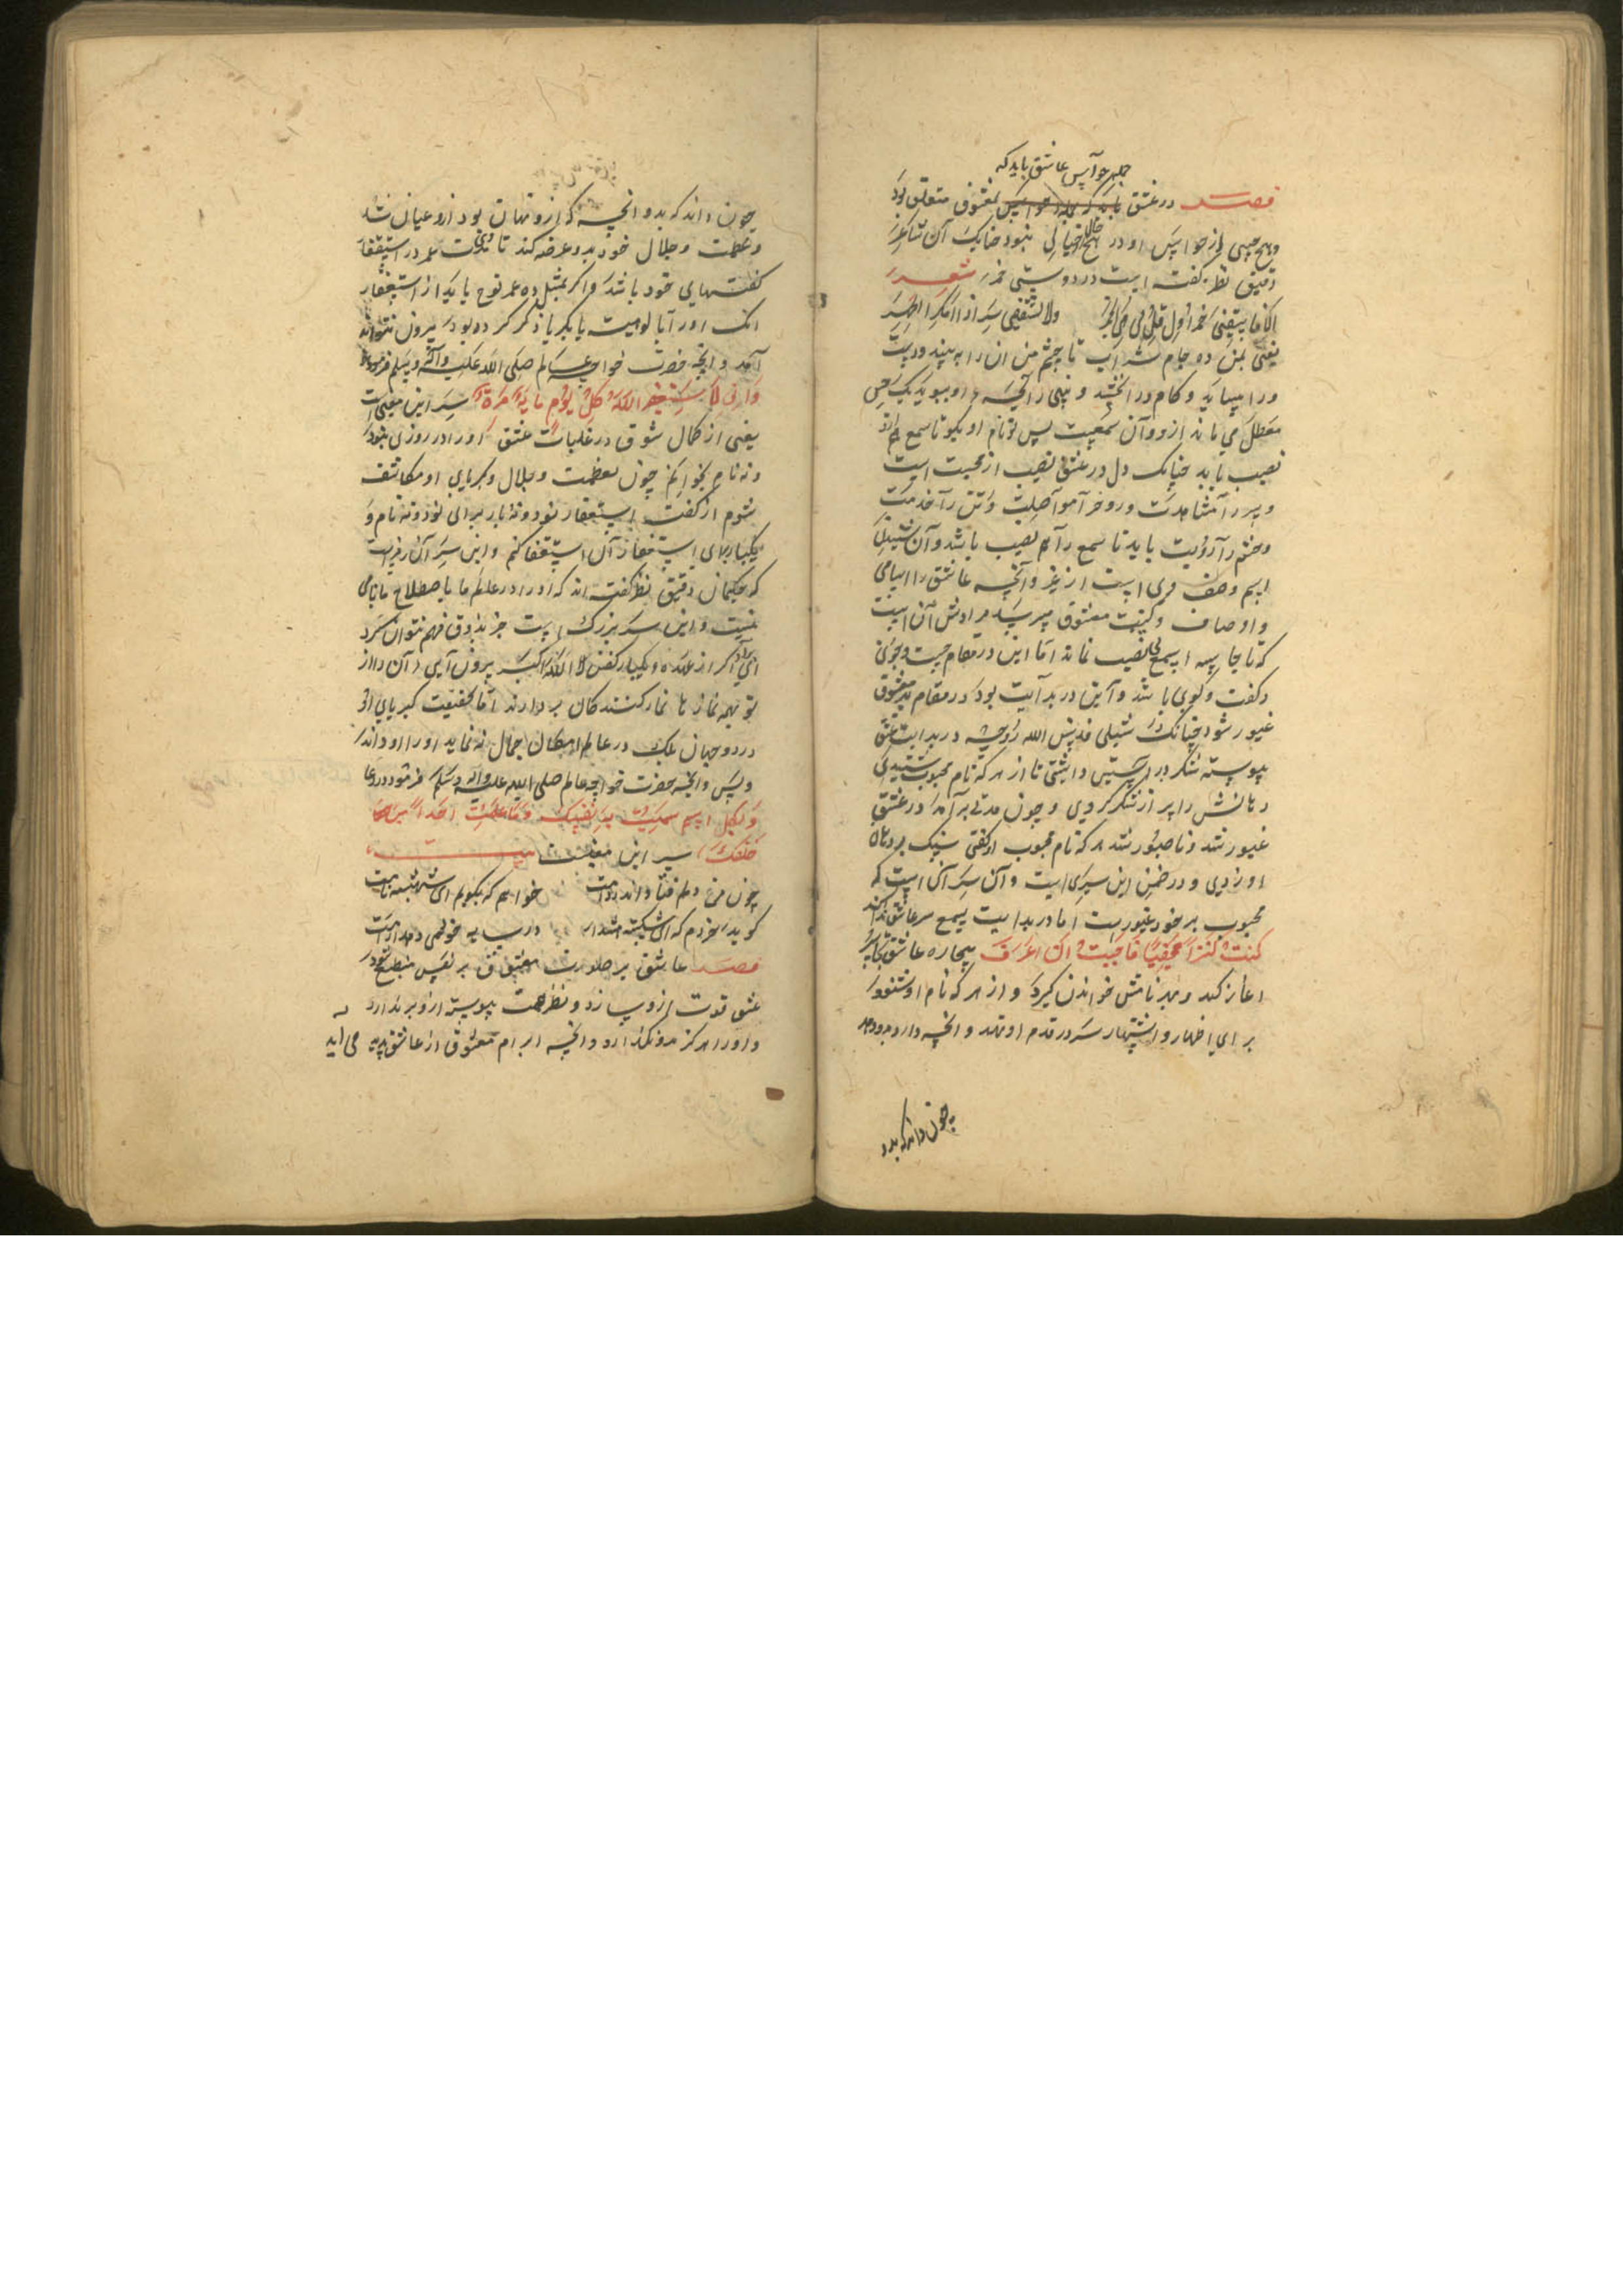 جمله حواس عاشق باید که
فصل در عشق باید که جمله حواس بمعشوق متعلق بود
و هیچ حسی از حواس او در هیچ حال خالی نبود چنانک آن شاعر
دقیق نظر گفته است در دوستی خمر شعر
الا فاسقنی خمرا و قل لی هی الخمر ولا تسقنی سرا اذا امکن الجهر
یعنی بمن ده جام شراب تا چشم من آن را به بیند و دست
ورا بساید و کام در انچشد و بینی رائحه او ببوید یک حس
معطل می ماند ازو و آن سمعست پس تو نام او بگو تا سمع هم ازو
نصیب یابد چنانک دل در عشق نصیب از محبت است
و سر را مشاهدت و روح را مواصلت و تن را خدمت
و چشم را رؤیت باید تا سمع را هم نصیب باشد و آن شنیدن
اسم و صف وی است از غیر و آنچه عاشق را اسامی
و اوصاف و کنیت معشوق میپرسد مرادش آن است
که تا حاسه سمع بی نصیب نماند اما این در مقام جست و جوی
و گفت و گوی باشد و این در بدایت بود در مقام
غیور شود چنانک شبلی قدس الله روحه در بدایت عشق
پیوسته شکر در آستین داشتی تا از هر که نام محبوب شنیدی
دهانش را پر از شکر کردی و چون مدتی برآمد در عشق
غیور شد و ناصبور شد هر که نام محبوب او گفتی سنگ بر دهان
او زدی و در ضمن این سری است و آن سر آن است که
محبوب بر خود غیورست اما در بدایت بسمع سر عاشق ندا کند
کنت کنزا مخفیا فاحببت ان اعرف بیچاره عاشق
آغاز کند و بهر نامش خواندن گیرد و از هر که نام او شنود
برای اظهار و اشتهار سر در قدم او نهد و آنچه دارد بدو دهد
چون داند که بدو
چون داند که بدو آنچه که ازو نهان بود ازو عیان شد
و عظمت و جلال خود بدو عرضه کند تا عمر در استغفار
گفتهای خود باشد و اگر بمثل ده عمر نوح یابد از استغفار
آنک او را بالوهیت یا بکبریا ذکر کرده بود بیرون نتواند
آمد و آنچه حضرت خواجه عالم صلی الله علیه و آله وسلم فرموده
وانی لاستغفر الله کل یوم مایة مرة سر این معنی است
یعنی از کمال شوق در غلبات عشق او را در روزی بنود
و نه نام بخوانم چون بعظمت و جلال و کبریای او مکاشف
شوم از گفت استغفار نود و نه بار برای نود و نه نام و
یکبار برای استغفار آن استغفار کنم و این سر آن رمزست
که حکیمان دقیق نظر گفته اند که او را در عالم ما باصطلاح ما نامی
نیست و این سر بزرگ است جز بذوق فهم نتوان کرد
ای برادر اگر از عهده یکبار گفتن الله اکبر بیرون آیی آن را از
تو بهمه نماز ها نماز کنندگان بر دارند اما حقیقت کبریای او
در دو جهان بلک در عالم امکان جمال نه نماید او را او داند
و بس و آنچه حضرت خواجه عالم صلی الله علیه و آله و سلم فرمود در دعا
و بکل اسم سمیت به نفسک و ما علمت احدا من
خلقک سر این معنیست بیت
چون مرغ دلم فتاده اندر دامت خواهم که بگویم ای نامت
گوید خردم که ای شکسته
فصل عاشق بر صورت معشوق بر نفس منطبع شود
عشق قوت ازو سازد و نظر همت پیوسته ازو بر ندارد
و او را هرگز فرو نگذارد و آنچه ابرام معشوق از عاشق پدید می آید